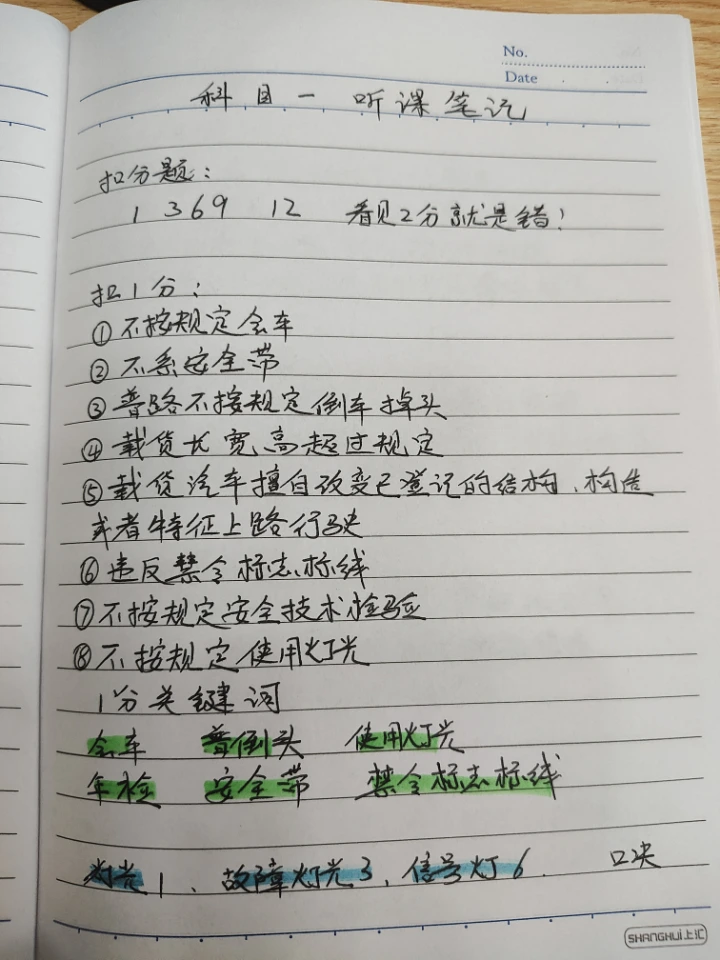 No.
Date
科目一 听课笔记
扣分题：
1 3 6 9 12 看见2分就是错！
扣1分：
①不按规定会车
②不系安全带
③普路不按规定倒车掉头
④载货长宽高超过规定
⑤载货汽车擅自改变已登记的结构、构造
或者特征上路行驶
⑥违反禁令标志标线
⑦不按规定安全技术检验
⑧不按规定使用灯光
1分关键词
会车 普倒头 使用灯光
年检 安全带 禁令标志标线
灯光1、故障灯光3，信号灯6. 口决
SHANGHUI上汇